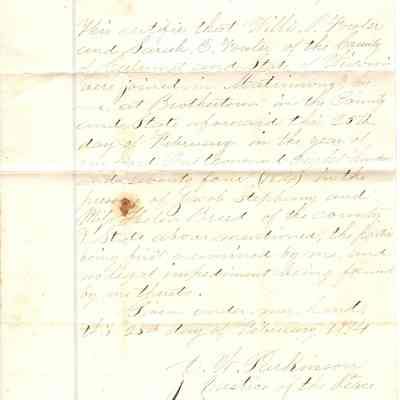 This certifies that Willis P. Fowler
and Sarah C. Fowler of the County
of Calumet and State of Wiscon
were joined in Matrimony by
me at Brothertown in the County
and State aforesaid the 25th
day of February in the year of
our Lord One thousand eight hundred
and seventy four (1874) in the
presence of Jacob Stephany and
Breed of the county
& State above mentioned, the parties
being first examined by me, and
no legal impediment being found
by me thereto.
Given under my hand,
this 25th day of February, 1874
Perkinson
Justice of the Peace